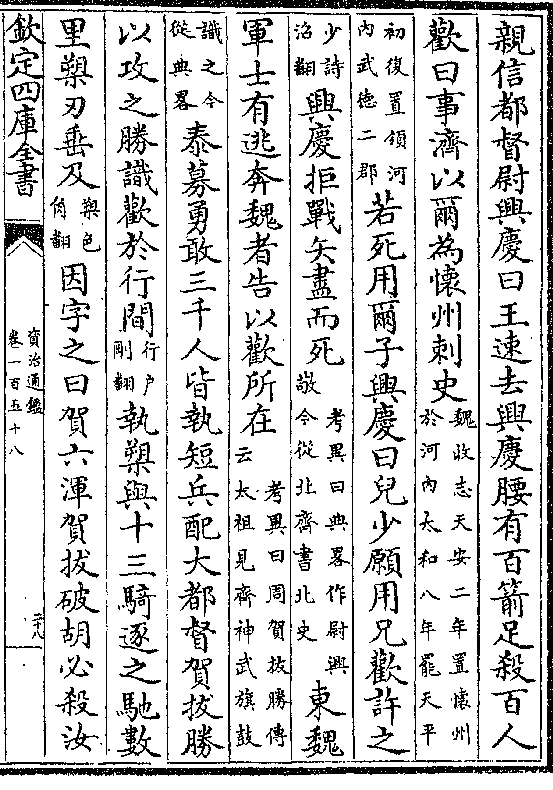 親信都督尉興慶曰王速去興慶腰有百箭足殺百人
歡曰事濟以爾為懷州刺史魏收志天安二年置懷州於河內太和八年罷天平
初復置領河內武德二郡若死用爾子興慶曰兒少願用兄歡許之
少詩沼翻興慶拒戰矢盡而死考異曰典畧作尉興敬今從北齊書北史東魏
軍士有逃奔魏者告以歡所在考異曰周賀拔勝傳云太祖見齊神武旗鼓
識之今從典畧泰募勇敢三千人皆執短兵配大都督賀拔勝
以攻之勝識歡於行間行戶剛翻執槊與十三騎逐之馳數
里槊刃垂及槊色角翻因字之曰賀六渾賀拔破胡必殺汝
欽定四庫全書
資治通鑑
卷一百五十八